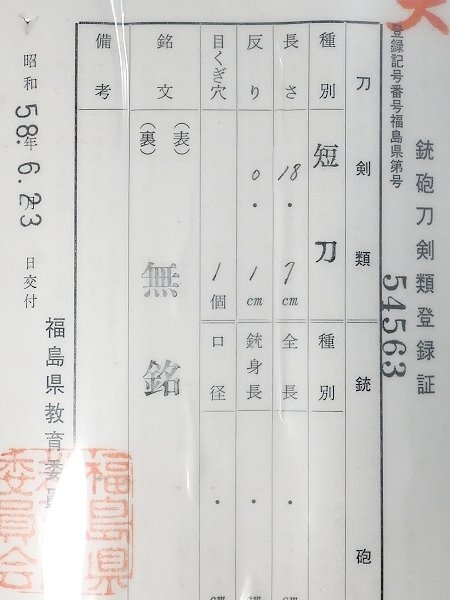 銃砲刀剣類登録証
登録記号番号福島県第号
54563
刀剣類
銃砲
種別
短刀
種別
長さ
18.7cm
全長
. cm
反り
0.1cm
銃身長
. cm
目くぎ穴
1個
口径
. cm
銘文
(表)
(裏)
無銘
備考
昭和58年6.月23日交付
福島県教育委員
福島県
委員会